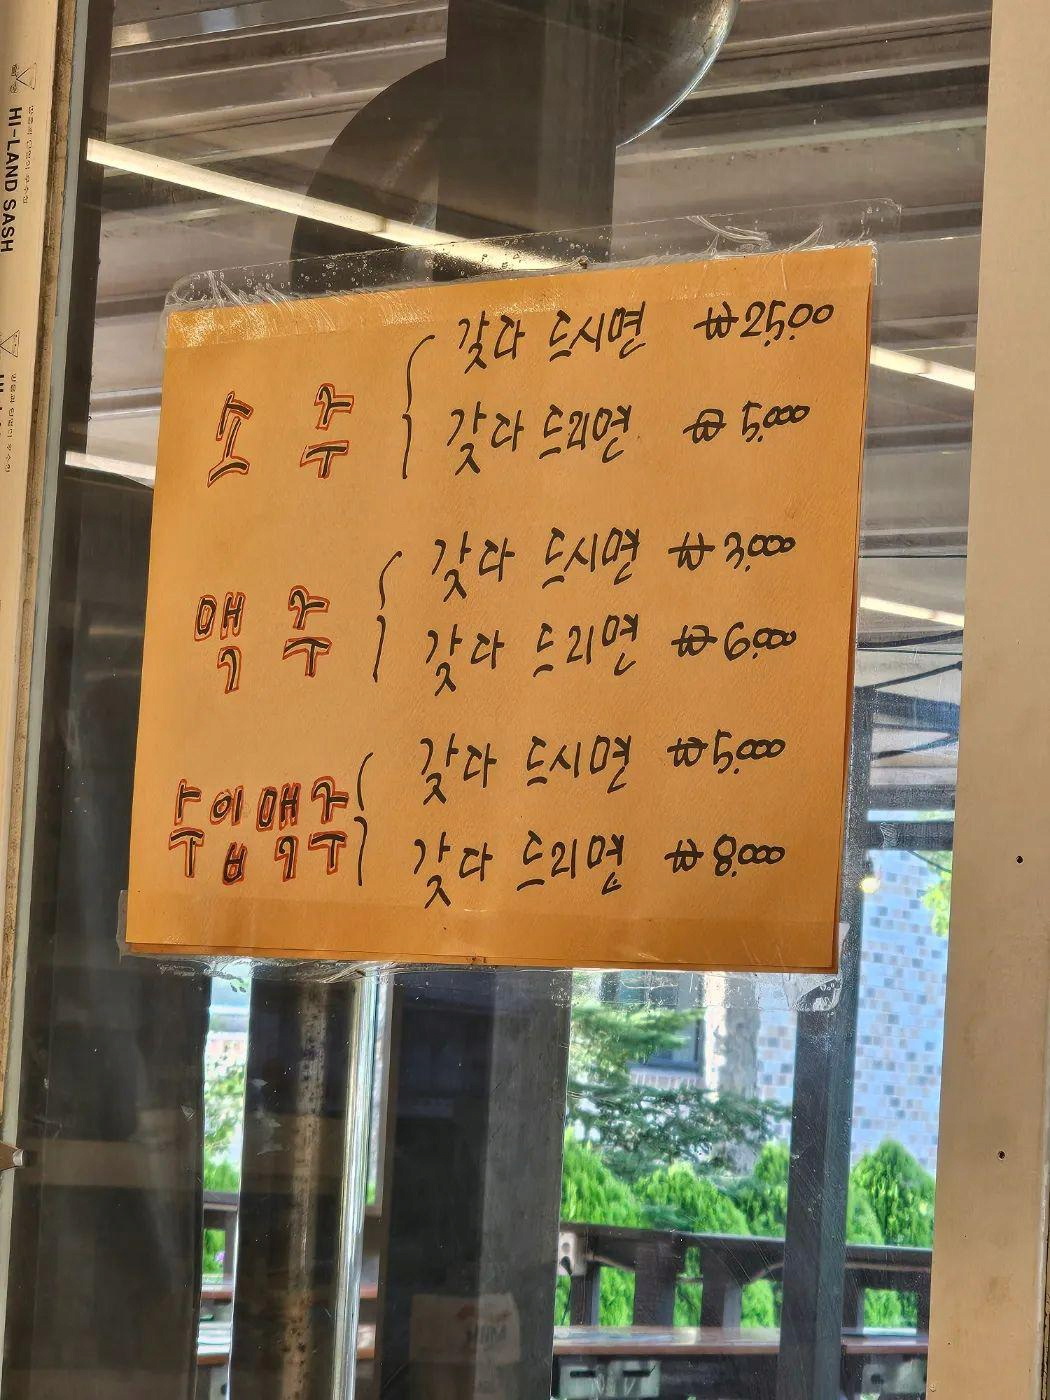 HI-LAND SASH
소주
갖다 드시면 ₩25,00
갖다 드리면 ₩5,000
맥주
갖다 드시면 ₩3,000
갖다 드리면 ₩6,000
수입맥주
갖다 드시면 ₩5,000
갖다 드리면 ₩8,000